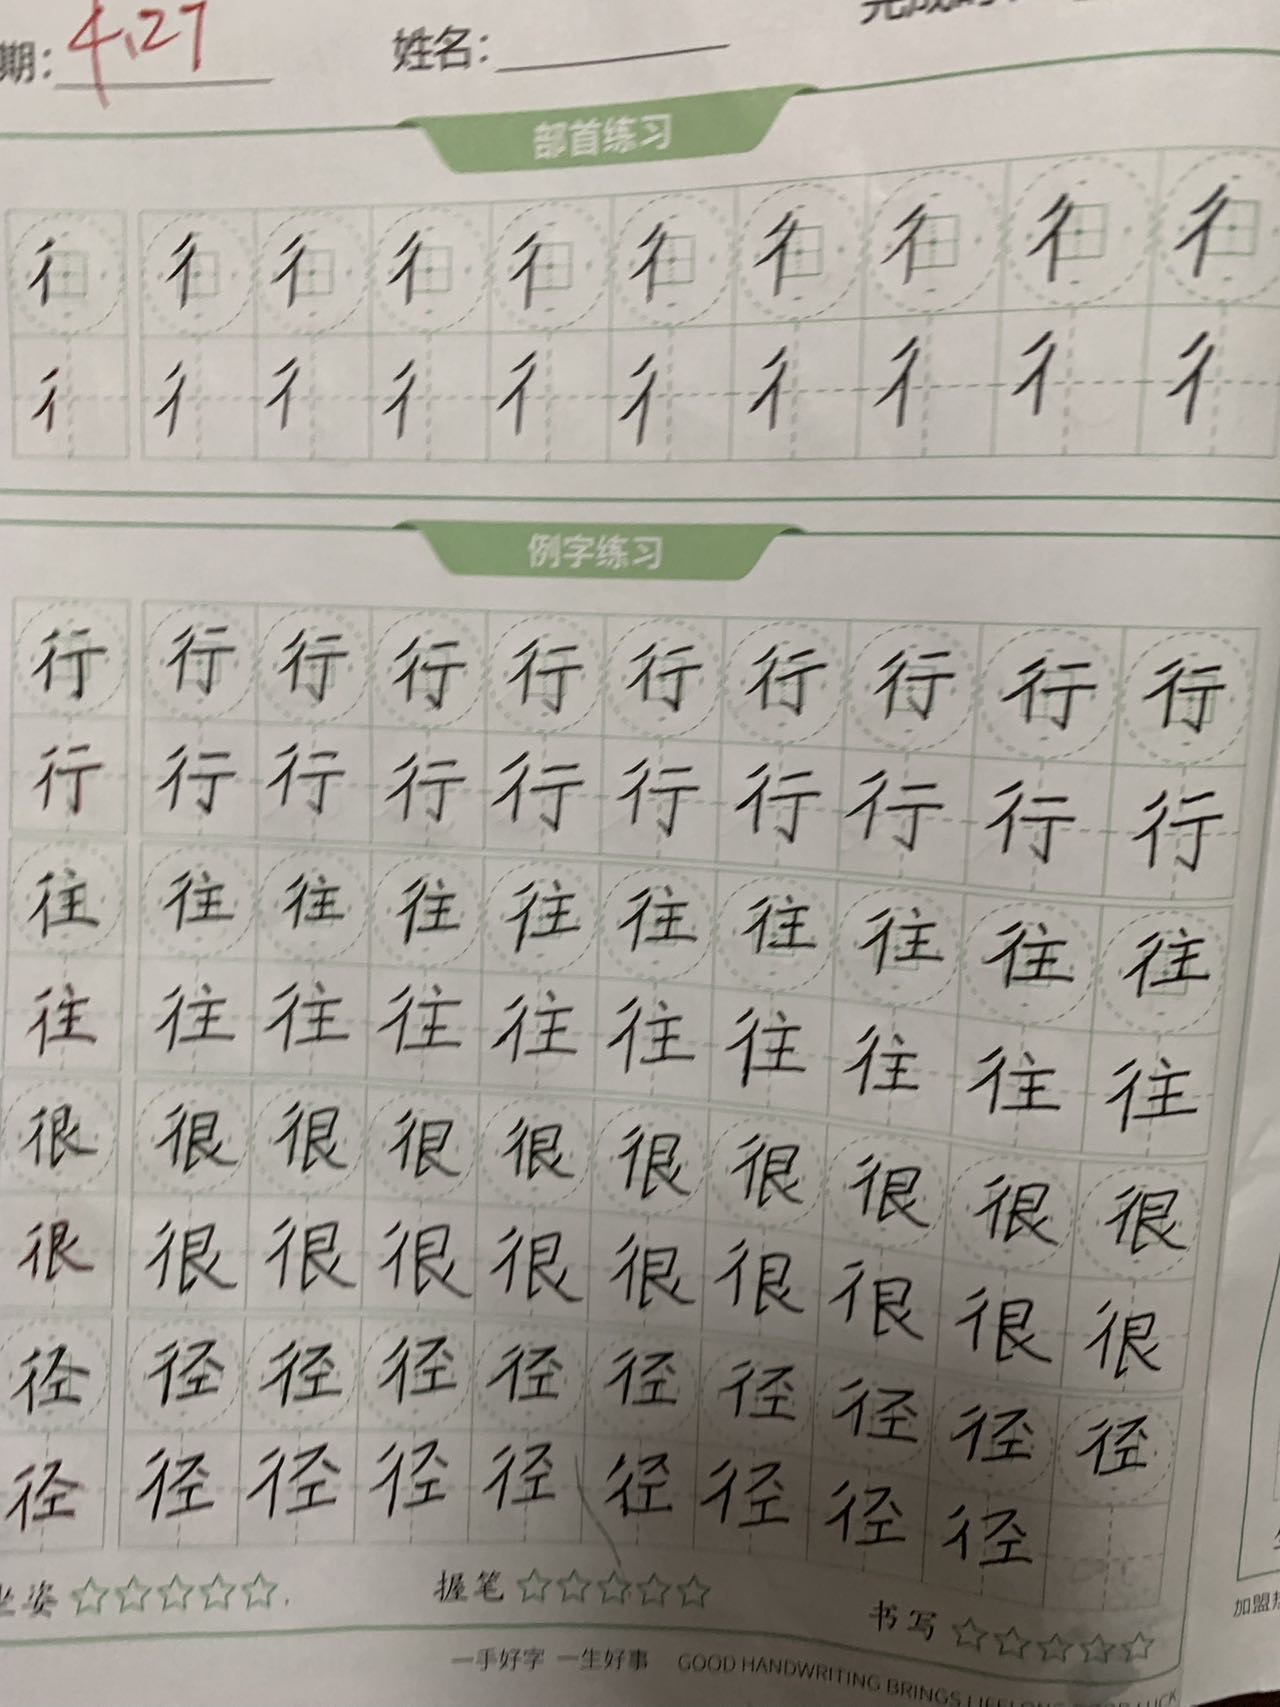 期：4.27 姓名：
部首练习
彳 彳 彳 彳 彳 彳 彳 彳 彳 彳
彳 彳 彳 彳 彳 彳 彳 彳 彳 彳
例字练习
行 行 行 行 行 行 行 行 行 行
行 行 行 行 行 行 行 行 行 行
往 往 往 往 往 往 往 往 往 往
往 往 往 往 往 往 往 往 往 往
很 很 很 很 很 很 很 很 很 很
很 很 很 很 很 很 很 很 很 很
径 径 径 径 径 径 径 径 径 径
径 径 径 径 径 径 径 径 径
坐姿 ☆☆☆☆☆ 握笔 ☆☆☆☆☆ 书写 ☆☆☆☆☆
一手好字 一生好事 GOOD HANDWRITING BRINGS LIFELONG GOOD LUCK
加盟